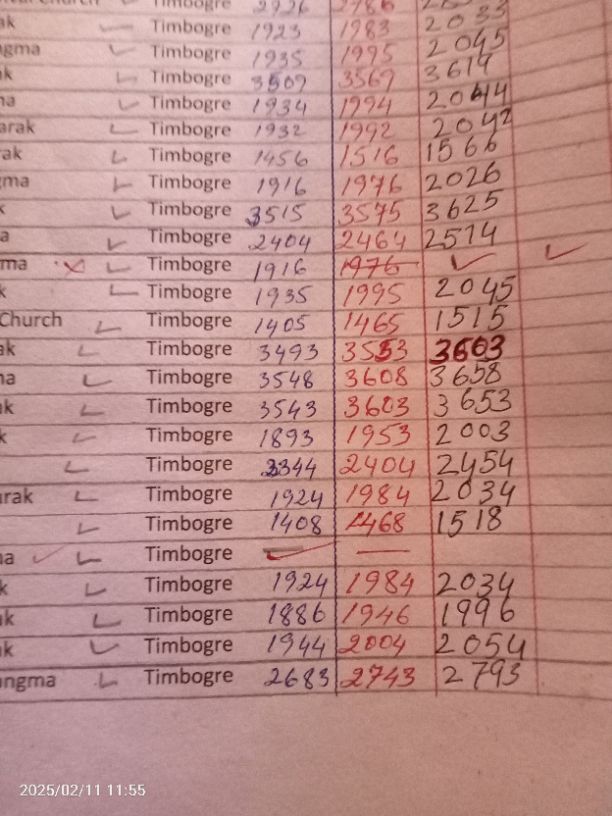 Church Timbogre 2726 2786
ak Timbogre 1923 1983 2033
ngma Timbogre 1935 1995 2045
ak Timbogre 3509 3569 3619
ma Timbogre 1934 1994 2044
arak Timbogre 1932 1992 2042
rak Timbogre 1456 1516 1566
gma Timbogre 1916 1976 2026
k Timbogre 3515 3575 3625
a Timbogre 2404 2464 2514
ma Timbogre 1916 1976
k Timbogre 1935 1995 2045
Church Timbogre 1405 1465 1515
ak Timbogre 3493 3553 3603
na Timbogre 3548 3608 3658
ak Timbogre 3543 3603 3653
k Timbogre 1893 1953 2003
Timbogre 2344 2404 2454
arak Timbogre 1924 1984 2034
Timbogre 1408 1468 1518
na Timbogre
k Timbogre 1924 1984 2034
ak Timbogre 1886 1946 1996
ak Timbogre 1944 2004 2054
angma Timbogre 2683 2743 2793
2025/02/11 11:55